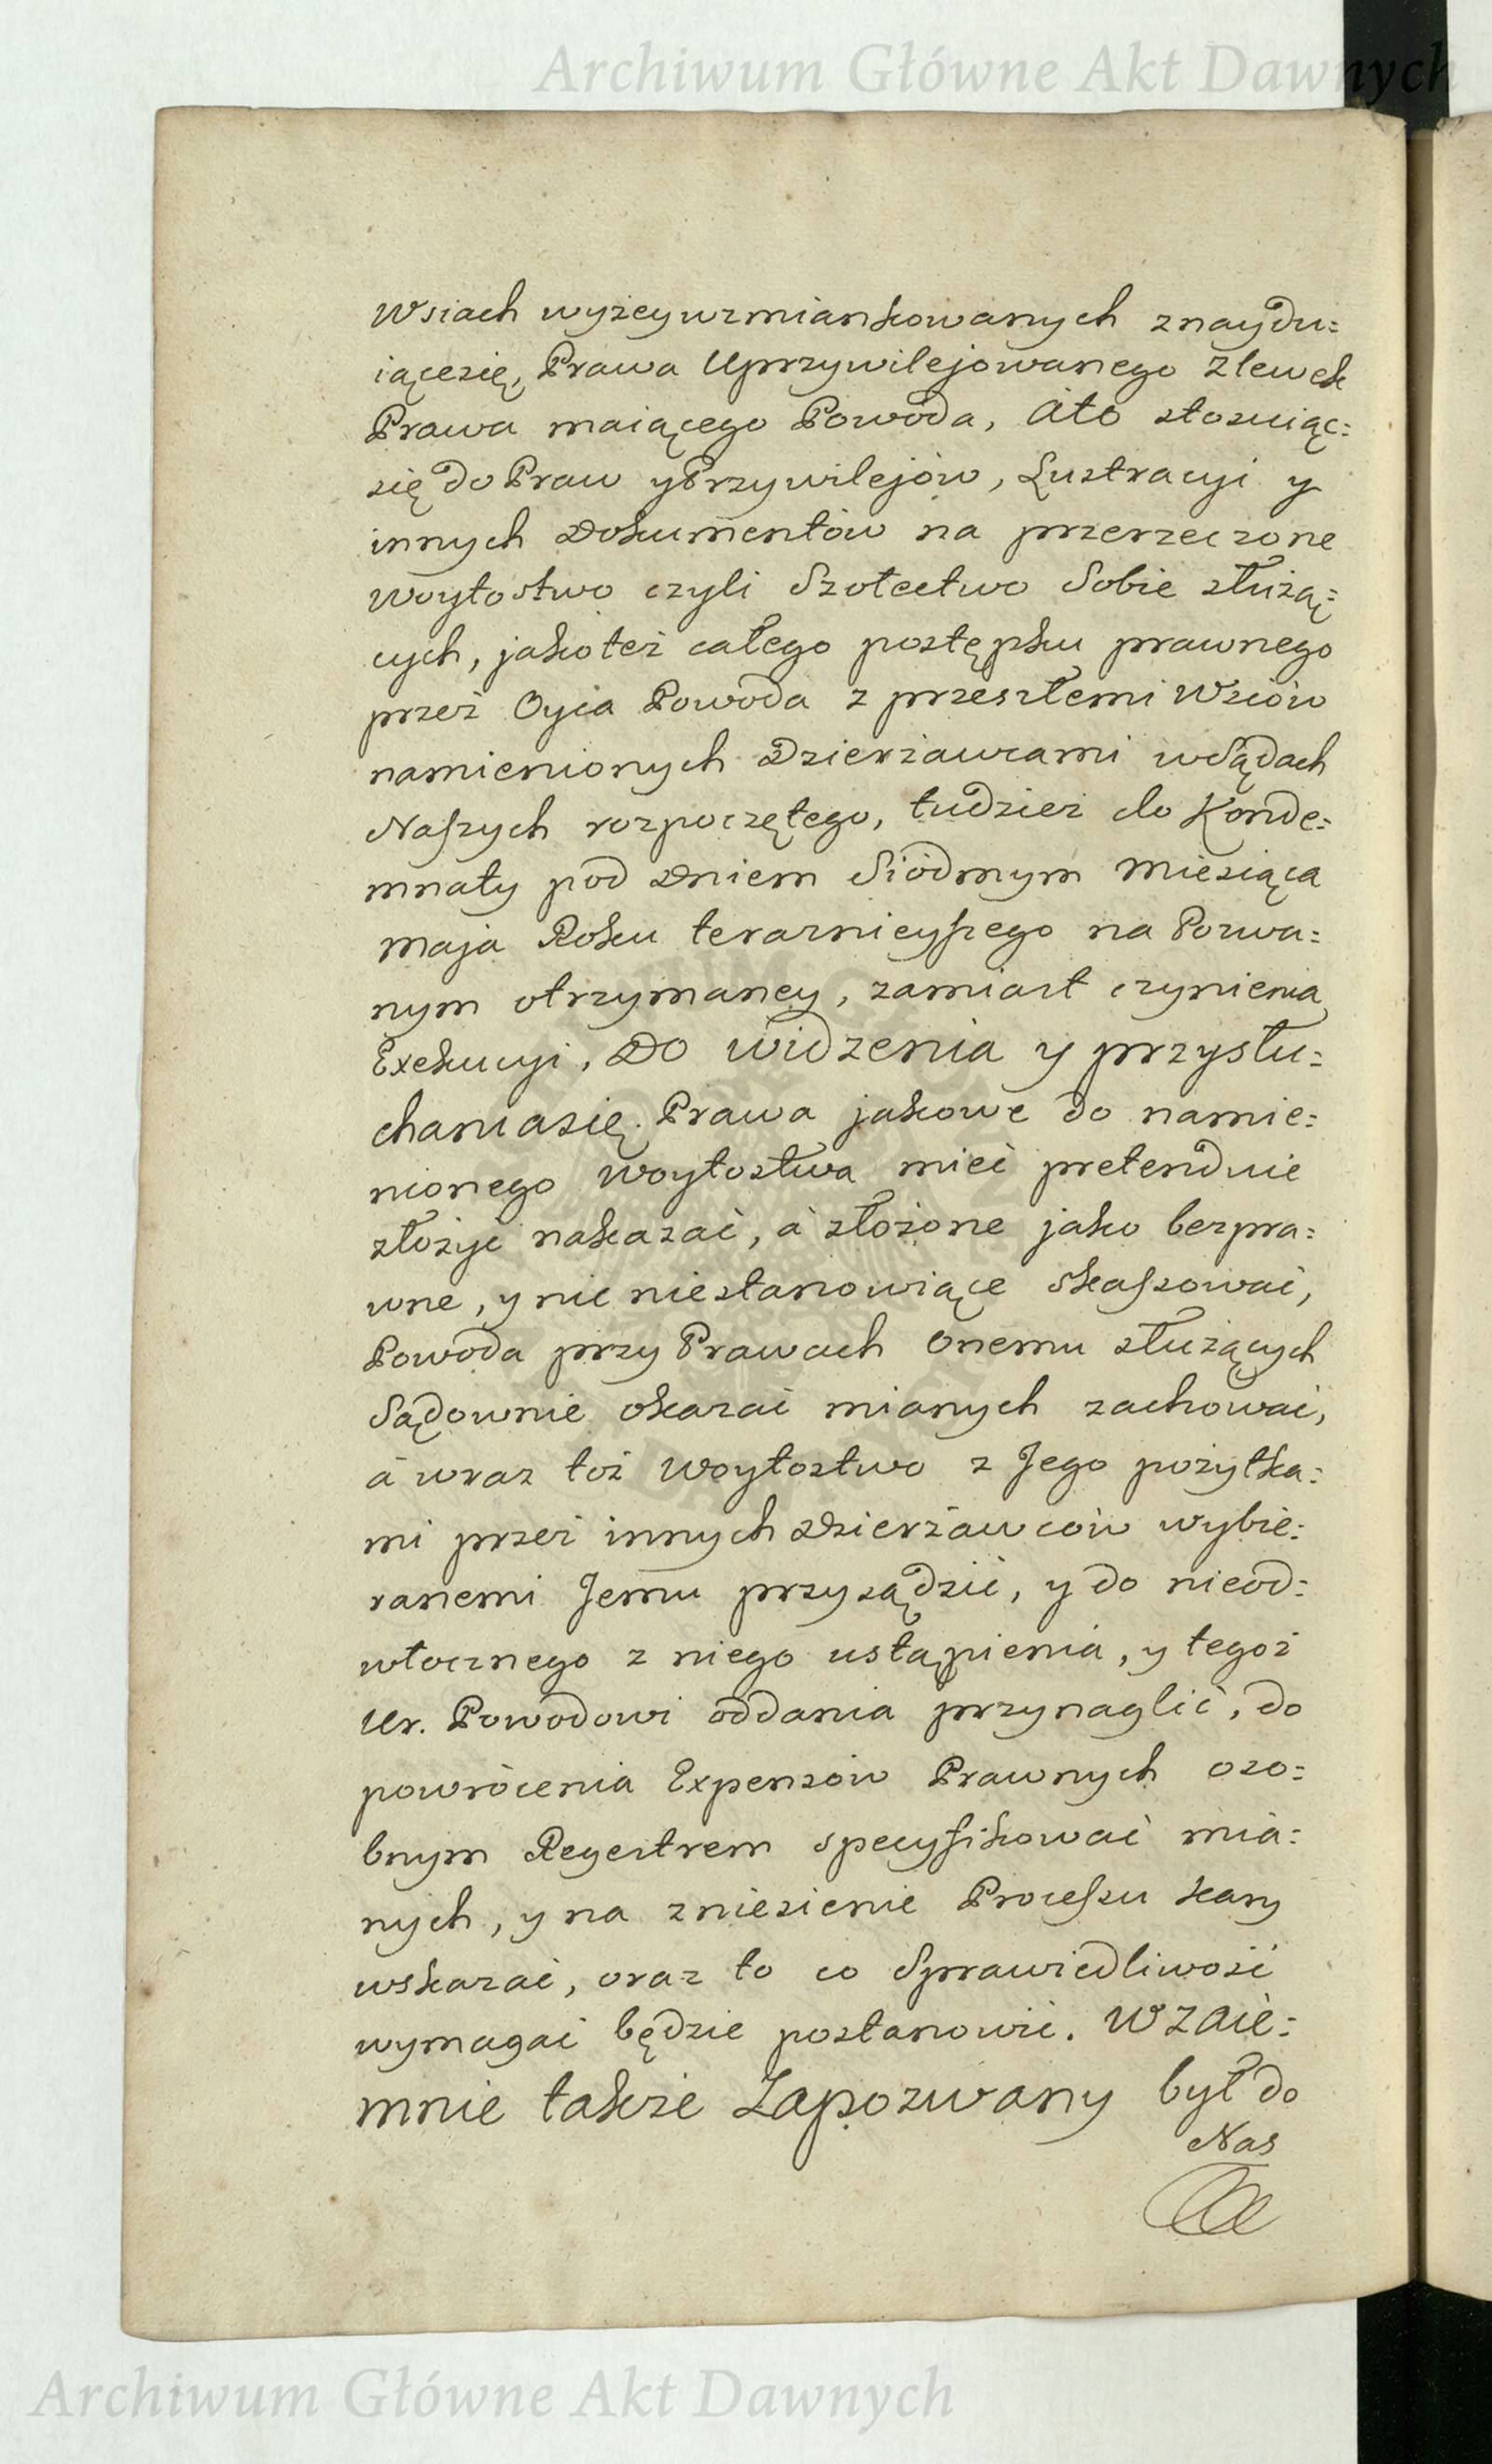 Archiwum Główne Akt Dawnych
Wsiach wyżeywzmiankowanych znaydu:
iącesię, Prawa Uprzywilejowanego Zlewek
Prawa maiącego Powoda, Ato stosuiąc:
się do Praw y Przywilejów, Lustracyi y
innych Dokumentów na przerzeczone
Woytostwo czyli Szołectwo Sobie służą:
cych, jakoteż całego postępku prawnego
przez Oyca Powoda z przeszłemi Wsiów
namienionych Dzierżawcami w Sądach
Naszych rozpoczętego, tudzież do Konde:
mnaty pod Dniem Siódmym Miesiąca
Maja Roku teraznieyszego na Pozwa:
nym otrzymaney, zamiast czynienia
Exekucyi, Do widzenia y przysłu:
chaniasię Prawa jakowe do namie:
nionego Woytostwa mieć pretenduie
złożyć nakazać, á złożone jako bezpra:
wne, y nic niestanowiące skassować,
Powoda przy Prawach Onemu służących
Sądownie okazać mianych zachować,
á wraz toż Woytostwo z Jego pożytka:
mi przez innych Dzierżawców wybie:
ranemi Jemu przysądzić, y do nieod:
włocznego z niego ustąpienia, y tegoż
Ur. Powodowi oddania przynaglić, do
powrócenia Expensów Prawnych oso:
bnym Regestrem specyfikować mia:
nych, y na zniesienie Processu kary
wskazać, oraz to co Sprawiedliwość
wymagać będzie postanowić. Wzaie:
mnie także Zapozwany był do
Nas
Archiwum Główne Akt Dawnych